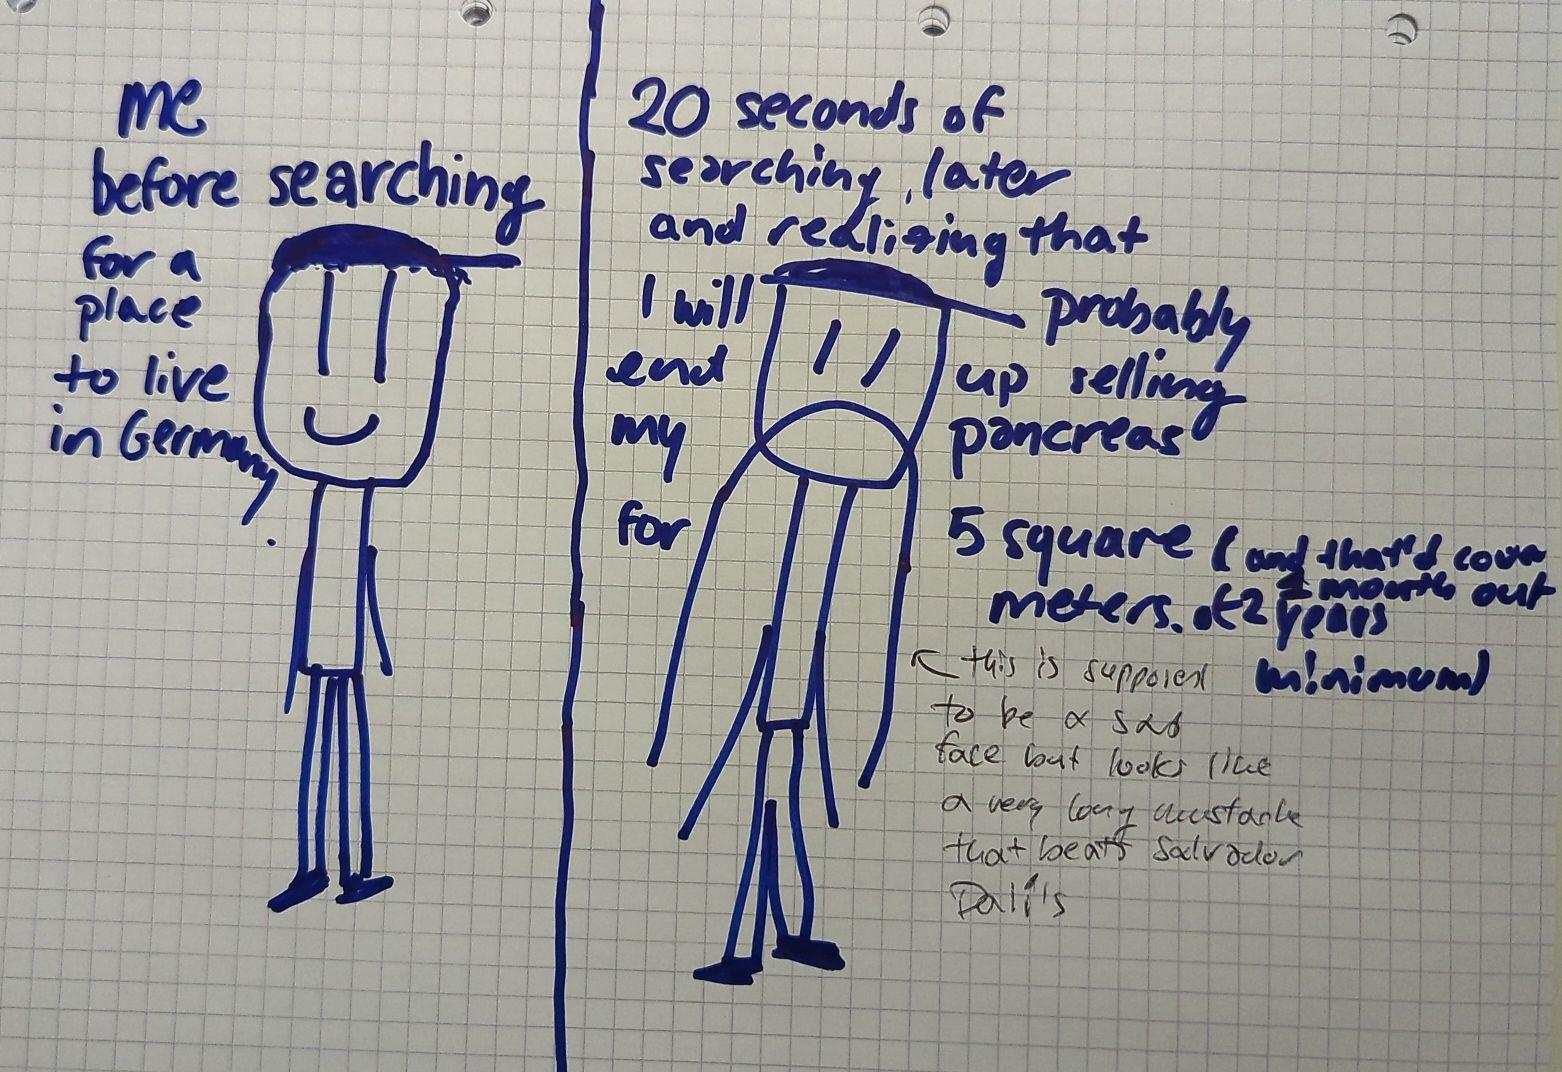 me
before searching
for a
place
to live
in Germany
20 seconds of
searching, later
and realizing that
I will probably
end up selling
my pancreas
for 5 square
meters. (and that'd cover
1 month out
of 2 years
minimum)
this is supposed
to be a sad
face but looks like
a very long mustache
that beats Salvador
Dalí's